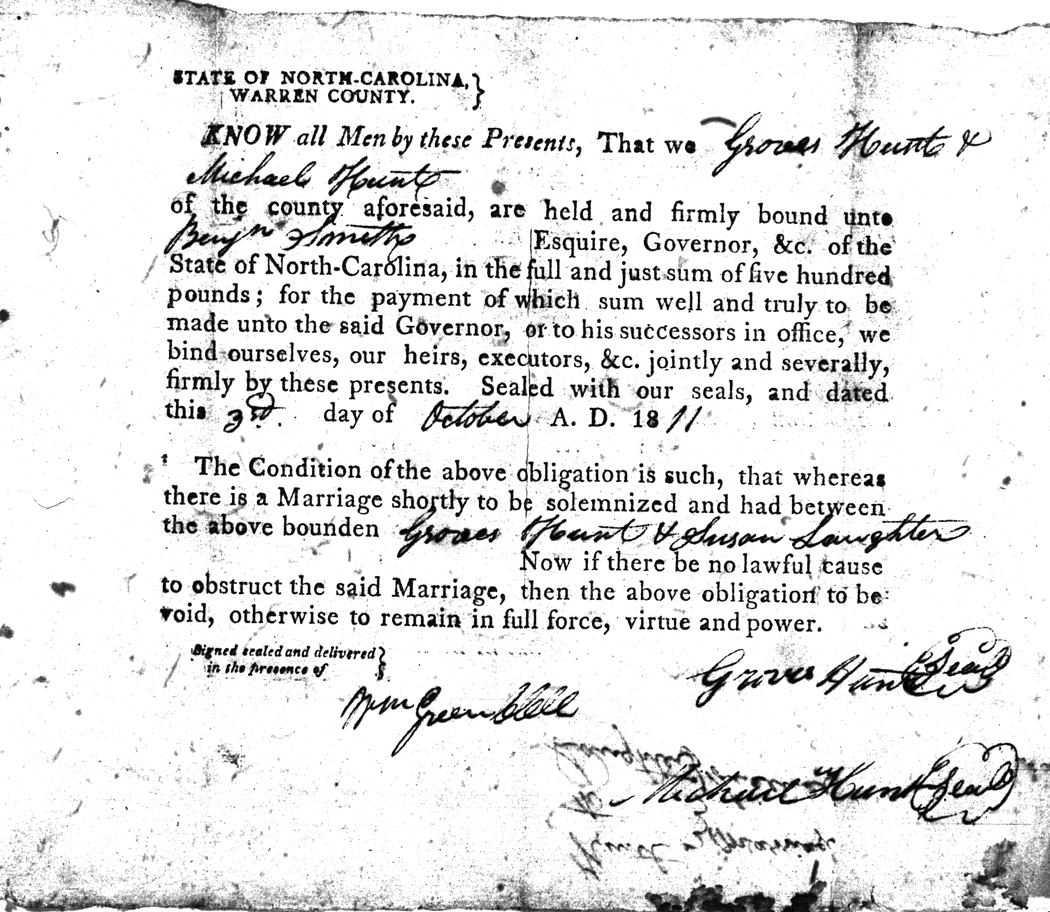 STATE OF NORTH-CAROLINA,
WARREN COUNTY.
KNOW all Men by these Presents, That we Groves Hunt &
Michael Hunt
of the county aforesaid, are held and firmly bound unto
Benjn Smith
Esquire, Governor, &c. of the
State of North-Carolina, in the full and just sum of five hundred
pounds; for the payment of which sum well and truly to be
made unto the said Governor, or to his successors in office, we
bind ourselves, our heirs, executors, &c. jointly and severally,
firmly by these presents. Sealed with our seals, and dated
this 3rd. day of October A. D. 1811
The Condition of the above obligation is such, that whereas
there is a Marriage shortly to be solemnized and had between
the above bounden Groves Hunt & Susan Laughter
Now if there be no lawful cause
to obstruct the said Marriage, then the above obligation to be
void, otherwise to remain in full force, virtue and power.
Signed sealed and delivered
in the presence of
Wm Green
Groves Hunt Seal
Michael Hunt Seal